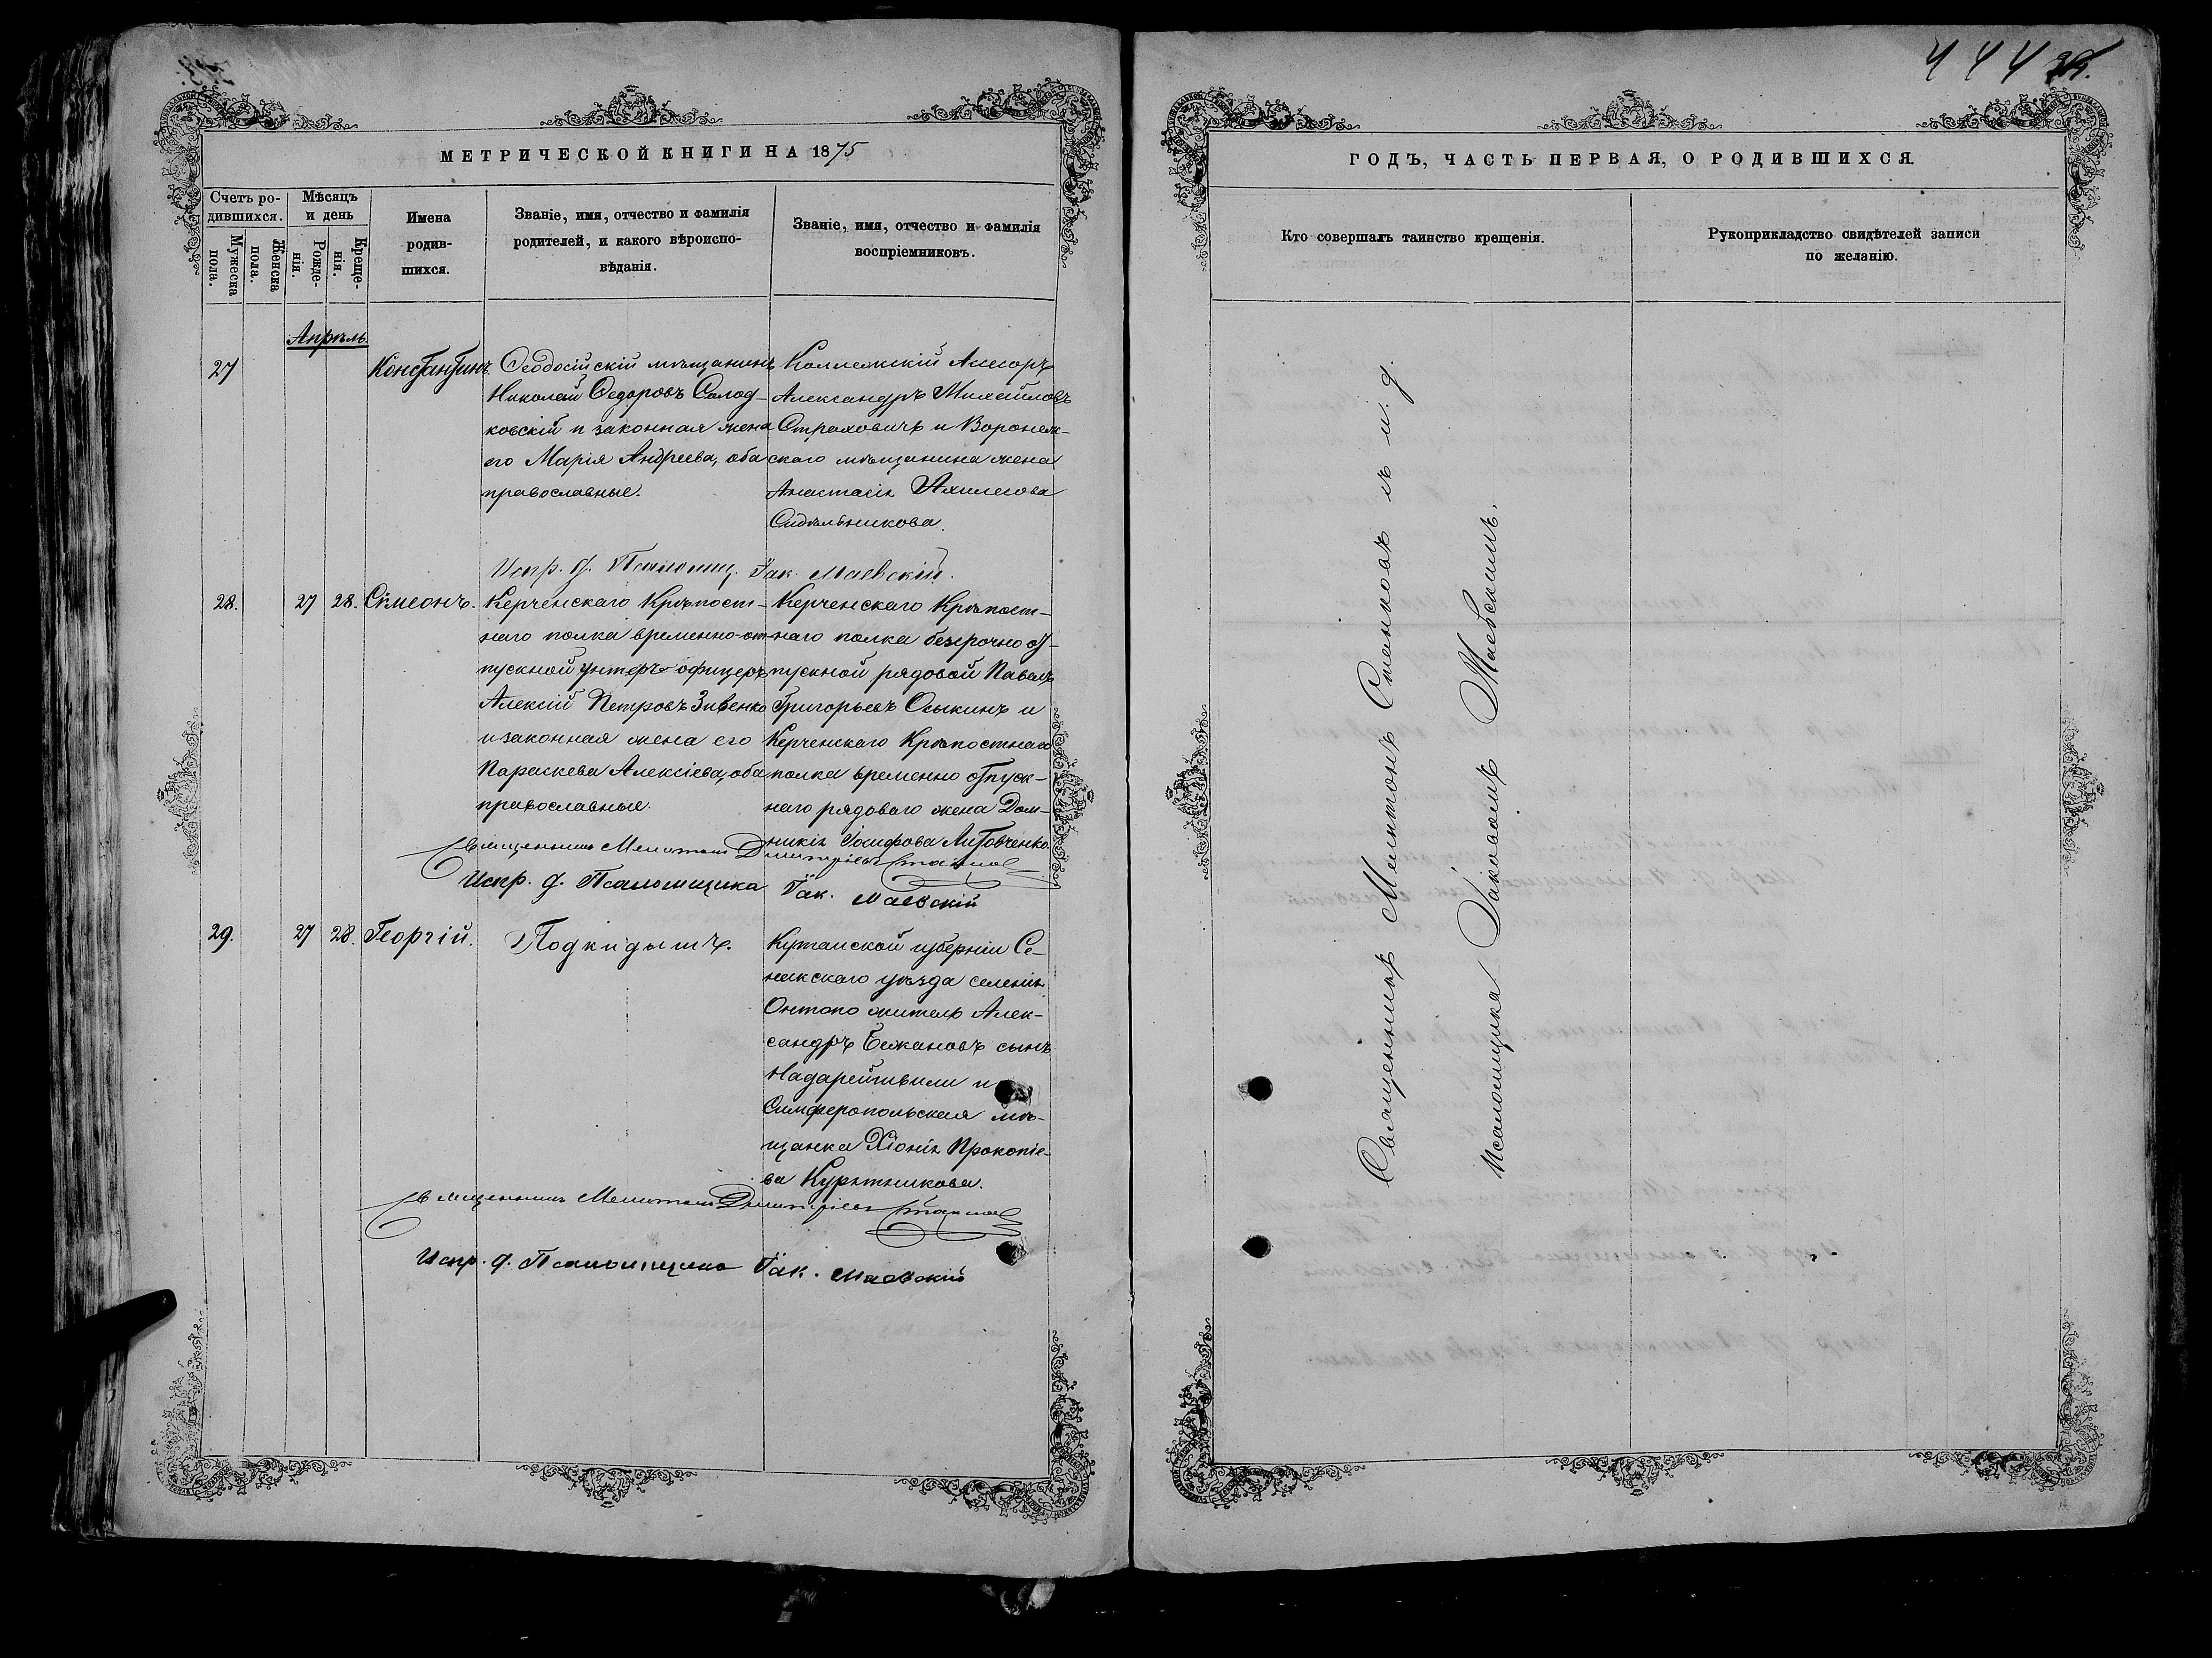 444
МЕТРИЧЕСКОЙ КНИГИ НА 1875
Счетъ ро-
дившихся.
Мужеска
пола.
Женска
пола.
Мѣсяцъ
и день
Рожде-
нія.
Креще-
нія.
Имена
родив-
шихся.
Званіе, имя, отчество и фамилія
родителей, и какого вѣроиспо-
вѣданія.
Званіе, имя, отчество и фамилія
воспріемниковъ.
Апрѣль
27
Константинъ.
Ѳеодосійскій мѣщанинъ
Николай Ѳедоровъ Солод-
ковскій и законная жена
его Марія Андреева, оба
православные.
Коллежскій Ассесоръ
Александръ Михайловъ
Страховичъ и Воронеж-
скаго мѣщанина жена
Анастасія
Сидѣльникова.
Испр. д. Псаломщ. Іак. Маевскій.
28. 27 28. Сѵмеонъ.
Керченскаго Крѣпост-
наго полка временно-от-
пускной унтеръ-офицеръ
Алексій Петровъ Зивенко
и законная жена его
Параскева Алексіева, оба
православные.
Керченскаго Крѣпост-
наго полка безсрочно от-
пускной рядовой Павелъ
Григорьевъ Осыкинъ и
Керченскаго Крѣпостнаго
полка временно отпуск-
наго рядоваго жена Дом-
никія Іосифова Литовченко
Священникъ Мелитонъ Димитріевъ
Испр. д. Псаломщика Іак. Маевскій
29. 27 28. Георгій.
Подкидышъ.
Кутаиской губерніи Се-
накскаго уѣзда селенія
Онтопо житель Алек-
сандръ Бежановъ сынъ
Надарейшвили и
Симферопольская мѣ-
щанка Хіонія Прокопіе-
ва Курятникова.
Священникъ Мелитонъ Димитріевъ
Испр. д. Псаломщика Іак. Маевскій
ГОДЪ, ЧАСТЬ ПЕРВАЯ, О РОДИВШИХСЯ.
Кто совершалъ таинство крещенія.
Рукоприкладство свидѣтелей записи
по желанію.
Священникъ Мелитонъ съ и. д.
Псаломщика Іаковомъ Маевскимъ.